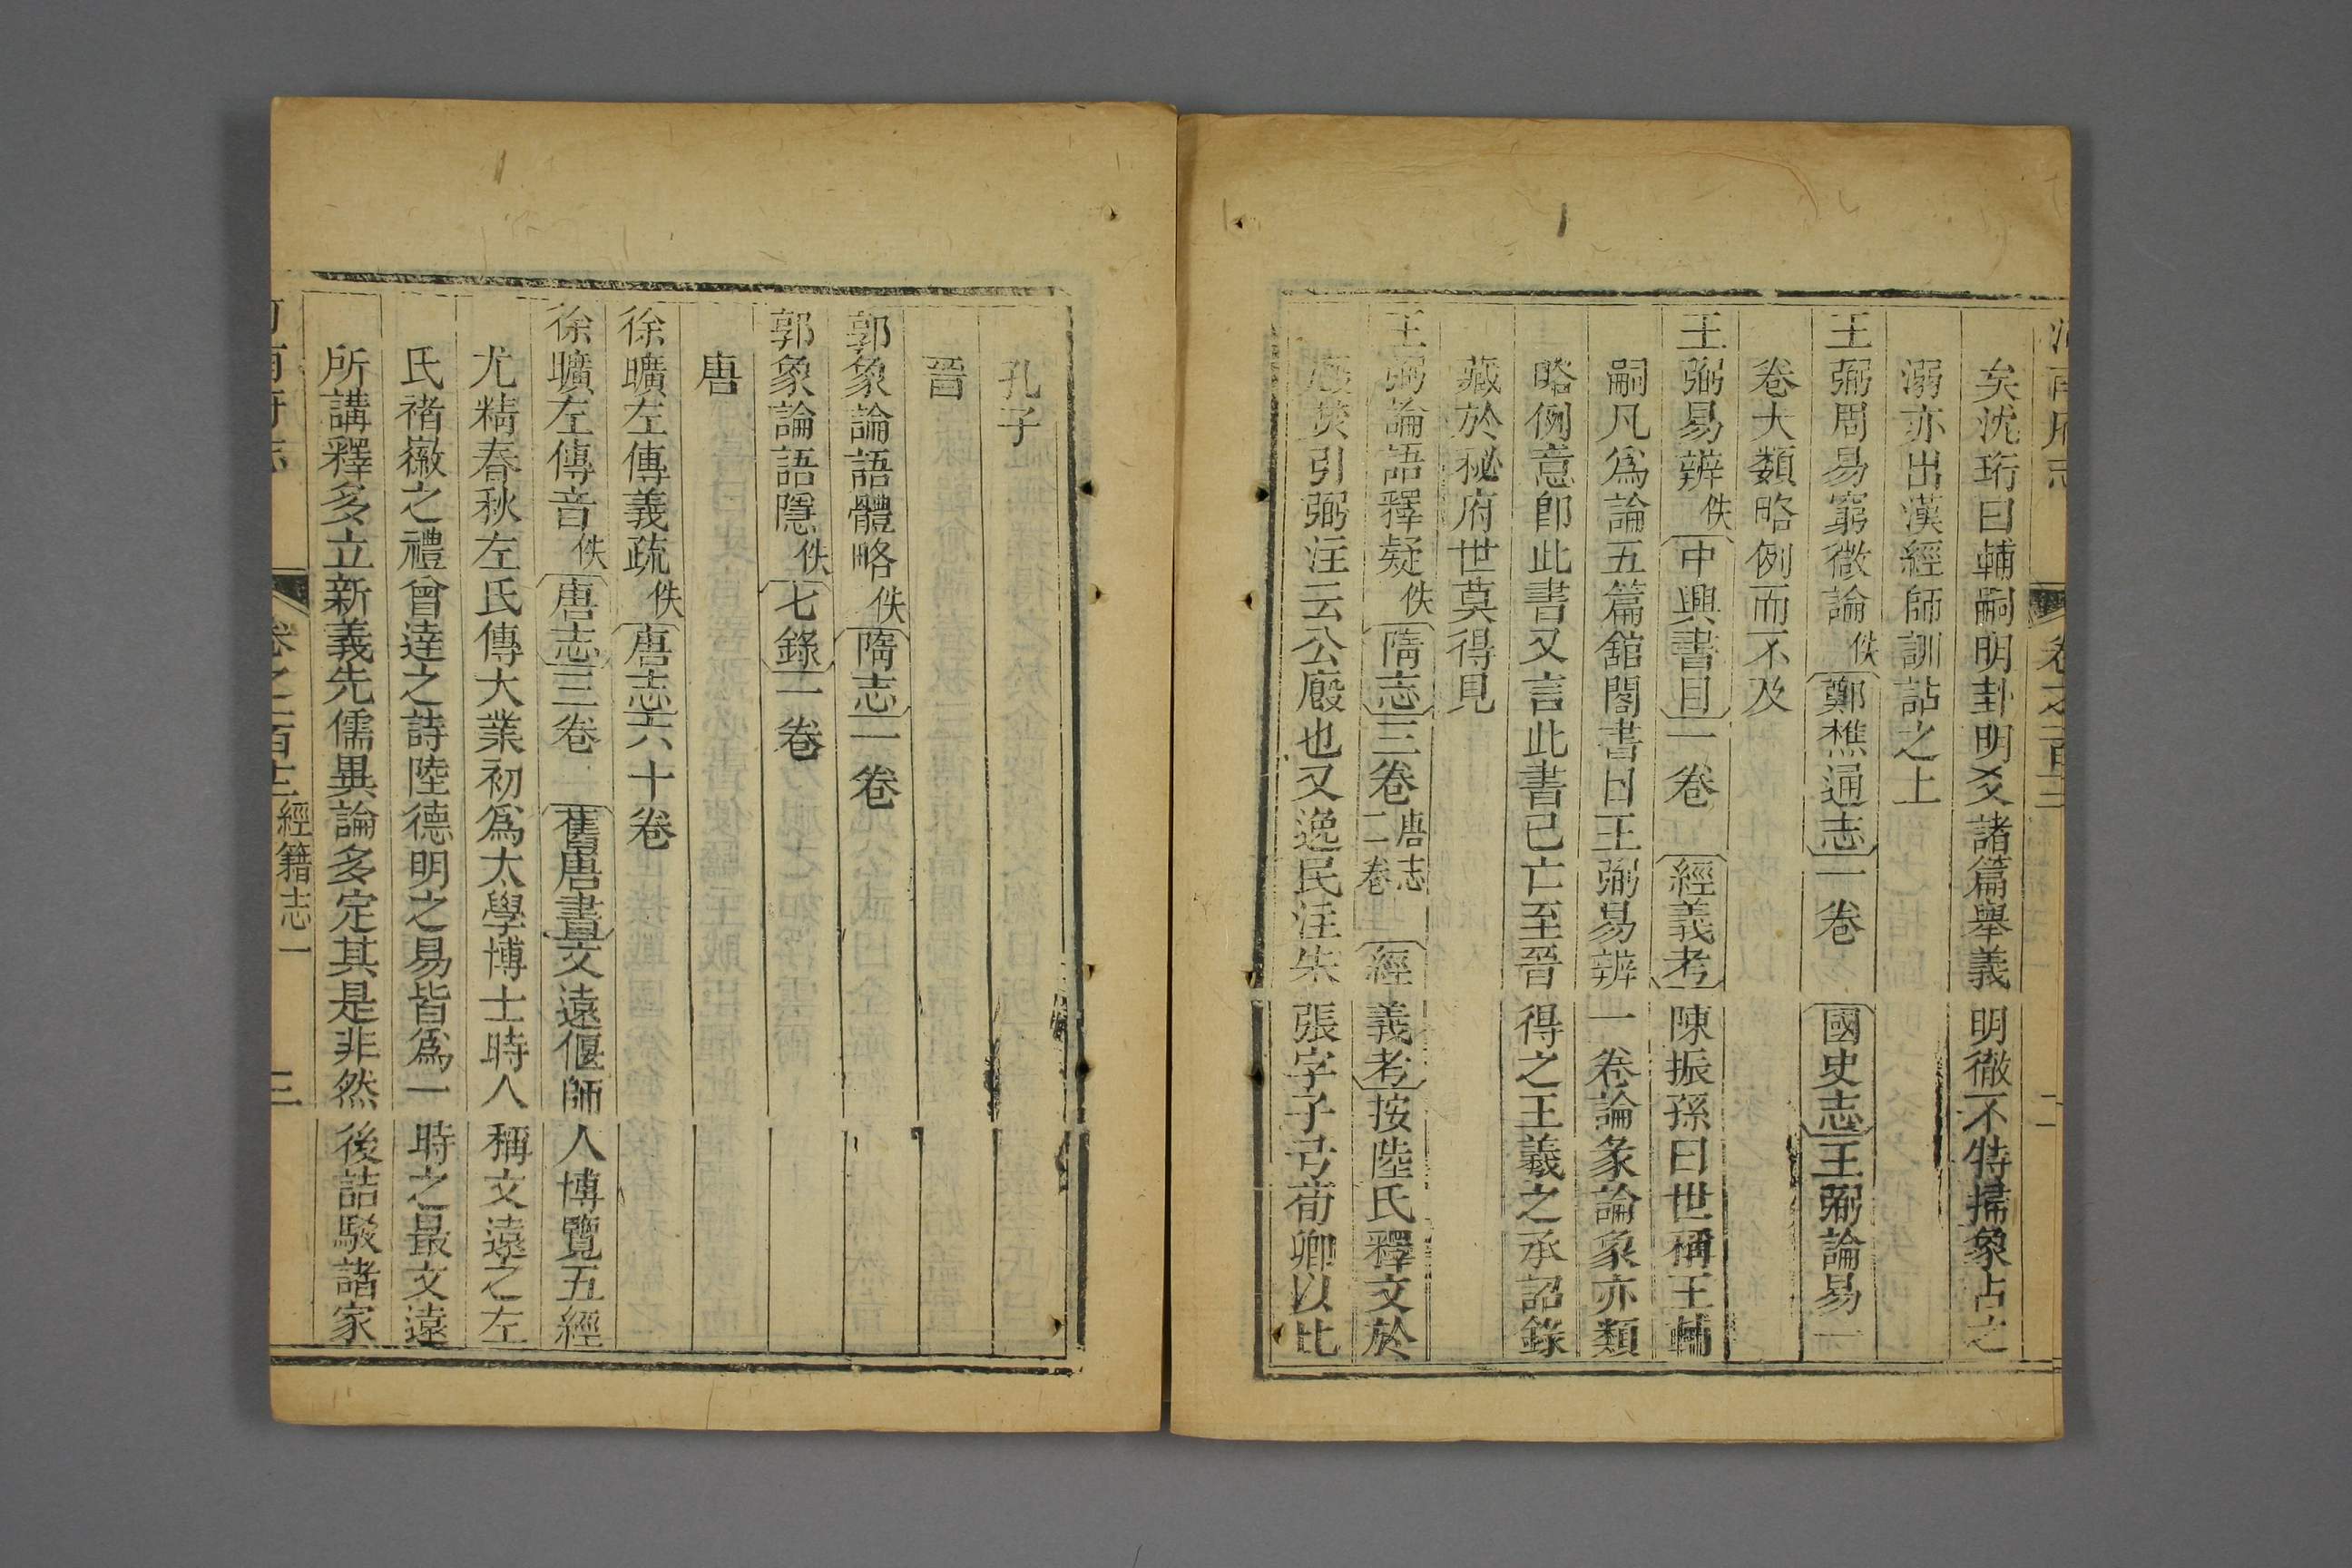 河南府志 卷之一百三 二
矣沈珩曰輔嗣明卦明爻諸篇舉義明徹不特掃象占之
溺亦出漢經師訓詁之上
王弼周易窮微論佚鄭樵通志一卷 國史志王弼論易一
卷大類略例而不及
王弼易辨佚中興書目一卷 經義考陳振孫曰世稱王輔
嗣凡爲論五篇舘閣書目王弼易辨一卷論彖論象亦類
略例意卽此書又言此書已亡至晉得之王羲之承詔錄
藏於秘府世莫得見
王弼論語釋疑佚隋志三卷唐志二卷 經義考按陸氏釋文於
廄焚引弼注云公廄也又逸民注朱張字子弓荀卿以比
孔子
晉
郭象論語體略佚隋志二卷
郭象論語隱佚七錄一卷
唐
徐曠左傳義疏佚唐志六十卷
徐曠左傳音佚唐志三卷 舊唐書文遠偃師人博覽五經
尤精春秋左氏傳大業初爲太學博士時人稱文遠之左
氏褚徽之禮曾達之詩陸德明之易皆爲一時之最文遠
所講釋多立新義先儒異論多定其是非然後詰駁諸家
經籍志一 三